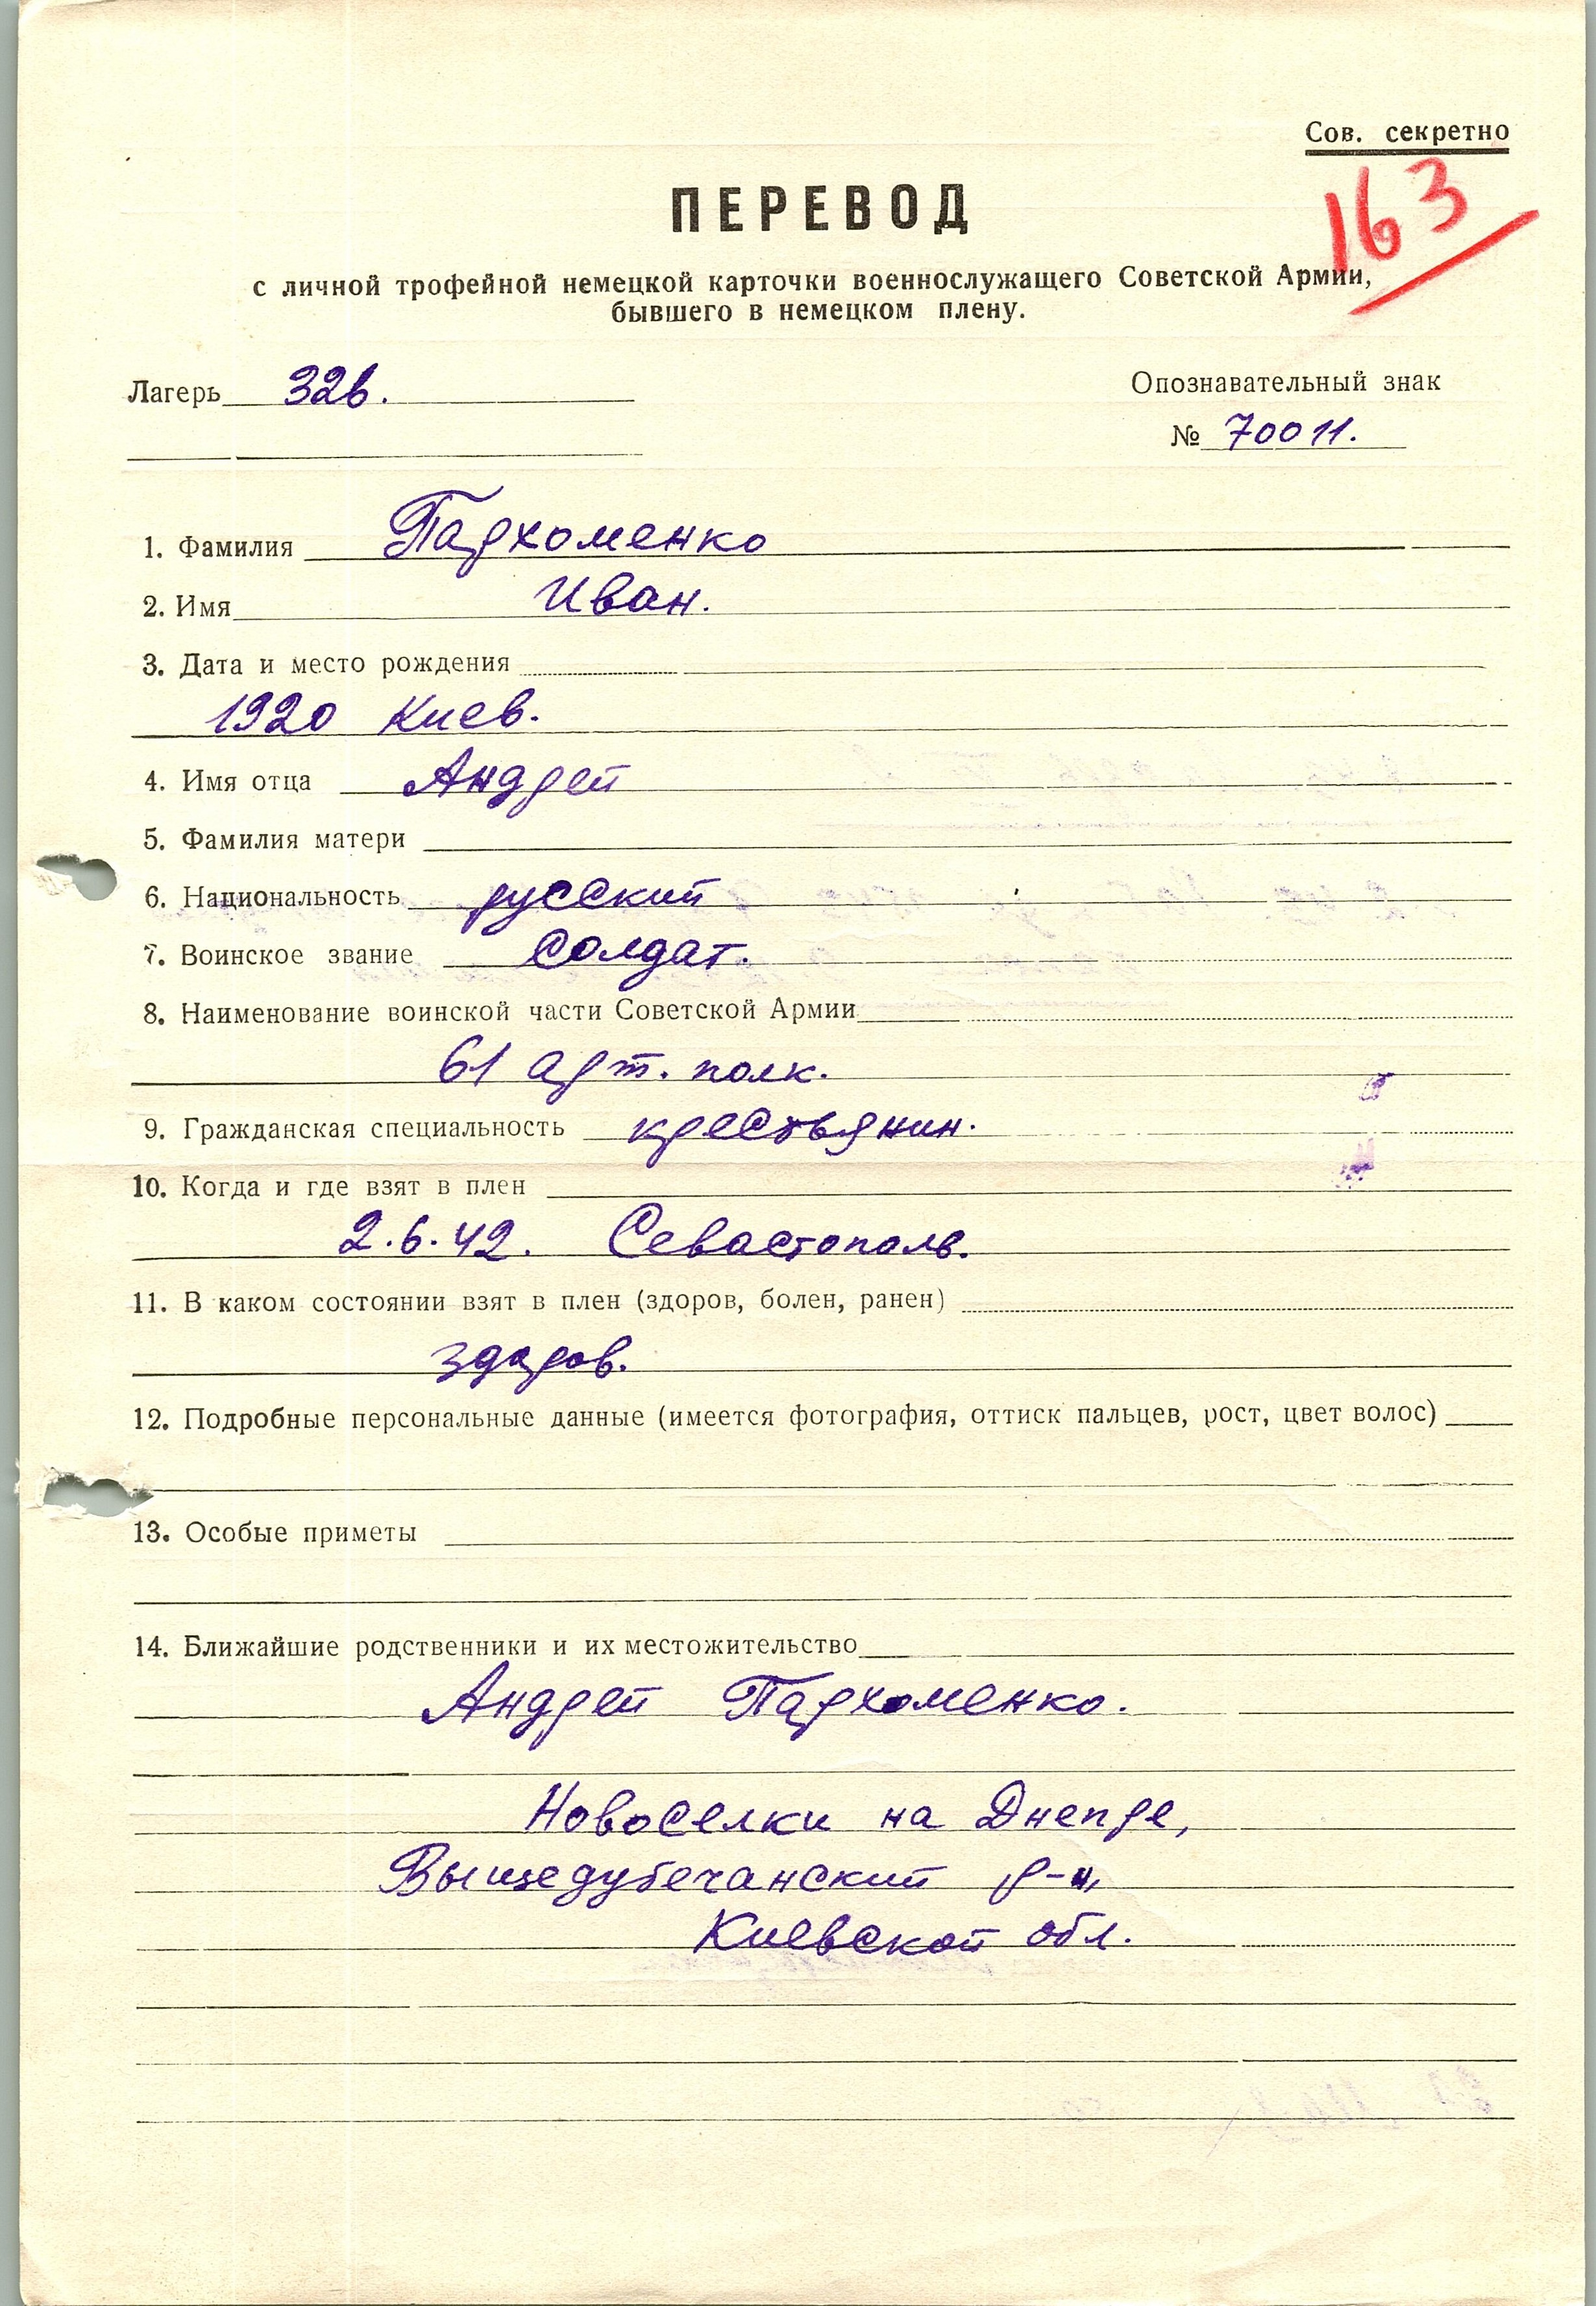 Сов. секретно
163
ПЕРЕВОД
с личной трофейной немецкой карточки военнослужащего Советской Армии,
бывшего в немецком плену.
Лагерь 326.
Опознавательный знак
№ 70011.
1. Фамилия Пархоменко
2. Имя Иван.
3. Дата и место рождения
1920 Киев.
4. Имя отца Андрей
5. Фамилия матери
6. Национальность русский
7. Воинское звание Солдат.
8. Наименование воинской части Советской Армии
61 арт. полк.
9. Гражданская специальность крестьянин.
10. Когда и где взят в плен
2.6.42. Севастополь.
11. В каком состоянии взят в плен (здоров, болен, ранен)
здоров.
12. Подробные персональные данные (имеется фотография, оттиск пальцев, рост, цвет волос)
13. Особые приметы
14. Ближайшие родственники и их местожительство
Андрей Пархоменко.
Новоселки на Днепре,
Вышедубечанский р-н,
Киевской обл.